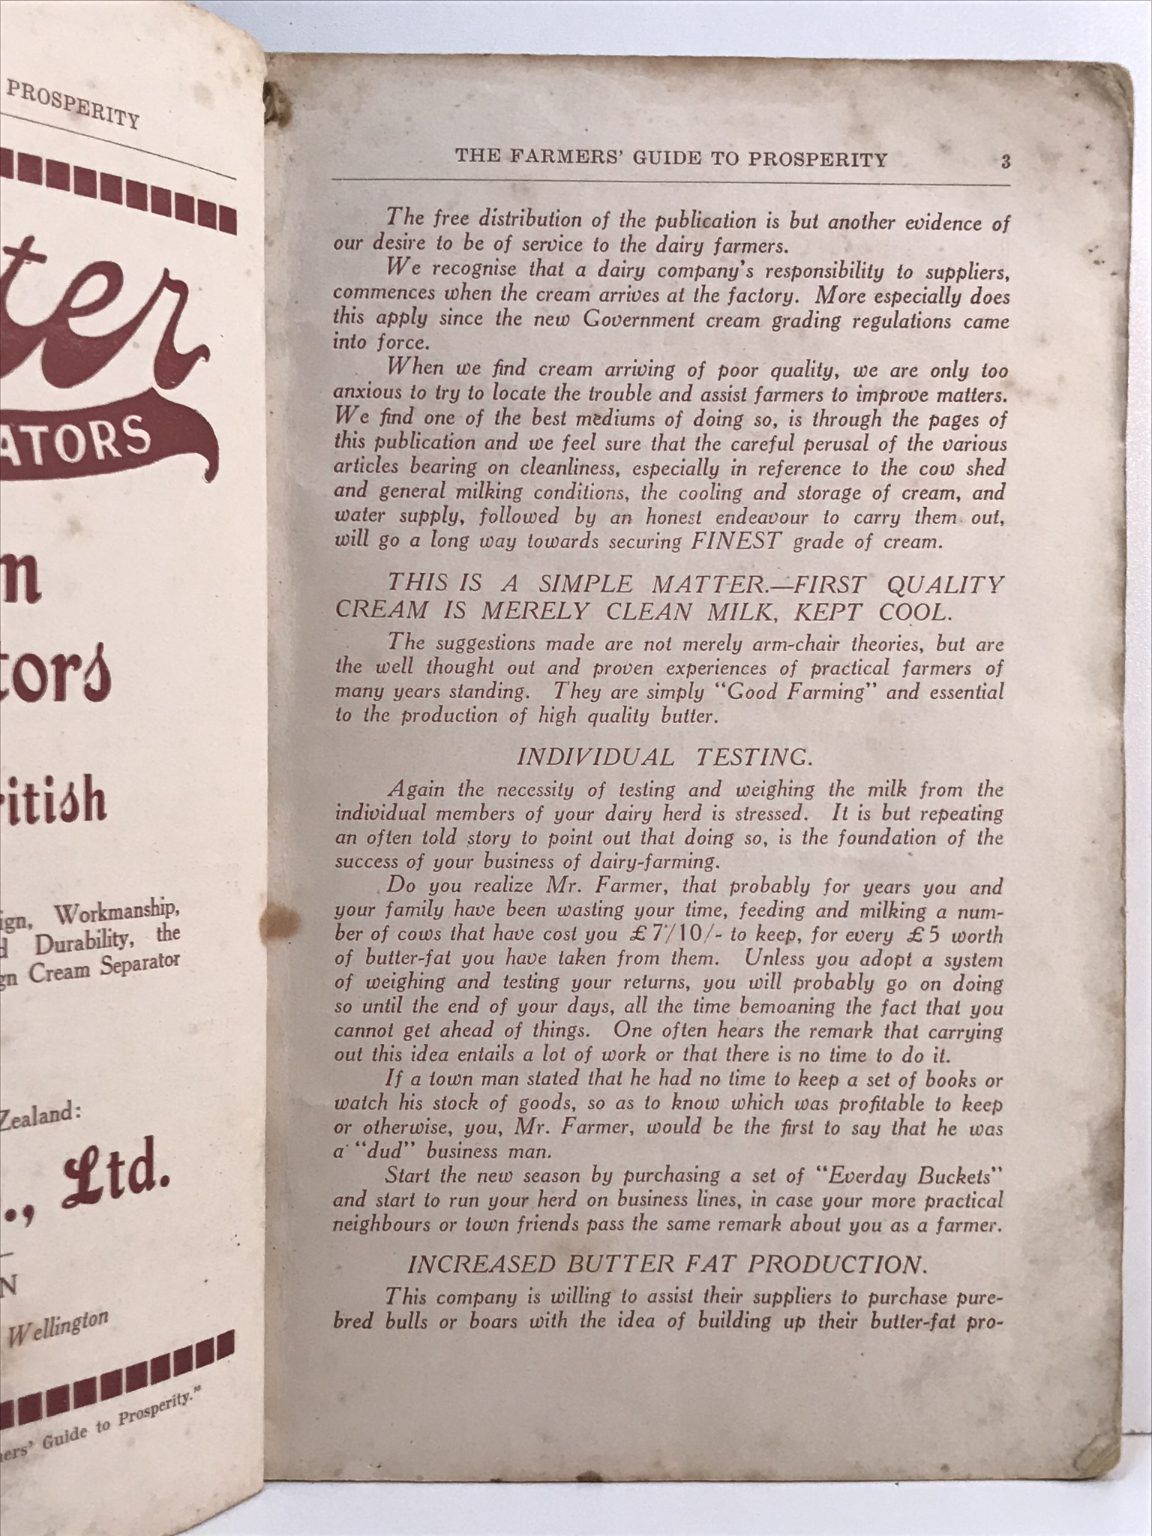 PROSPERITY
ter
ATORS
m
tors
ritish
ign, Workmanship,
d Durability, the
gn Cream Separator
Zealand:
., Ltd.
N
Wellington
ners' Guide to Prosperity."
THE FARMERS' GUIDE TO PROSPERITY 3
The free distribution of the publication is but another evidence of
our desire to be of service to the dairy farmers.
We recognise that a dairy company's responsibility to suppliers,
commences when the cream arrives at the factory. More especially does
this apply since the new Government cream grading regulations came
into force.
When we find cream arriving of poor quality, we are only too
anxious to try to locate the trouble and assist farmers to improve matters.
We find one of the best mediums of doing so, is through the pages of
this publication and we feel sure that the careful perusal of the various
articles bearing on cleanliness, especially in reference to the cow shed
and general milking conditions, the cooling and storage of cream, and
water supply, followed by an honest endeavour to carry them out,
will go a long way towards securing FINEST grade of cream.
THIS IS A SIMPLE MATTER.—FIRST QUALITY
CREAM IS MERELY CLEAN MILK, KEPT COOL.
The suggestions made are not merely arm-chair theories, but are
the well thought out and proven experiences of practical farmers of
many years standing. They are simply "Good Farming" and essential
to the production of high quality butter.
INDIVIDUAL TESTING.
Again the necessity of testing and weighing the milk from the
individual members of your dairy herd is stressed. It is but repeating
an often told story to point out that doing so, is the foundation of the
success of your business of dairy-farming.
Do you realize Mr. Farmer, that probably for years you and
your family have been wasting your time, feeding and milking a num-
ber of cows that have cost you £7/10/- to keep, for every £5 worth
of butter-fat you have taken from them. Unless you adopt a system
of weighing and testing your returns, you will probably go on doing
so until the end of your days, all the time bemoaning the fact that you
cannot get ahead of things. One often hears the remark that carrying
out this idea entails a lot of work or that there is no time to do it.
If a town man stated that he had no time to keep a set of books or
watch his stock of goods, so as to know which was profitable to keep
or otherwise, you, Mr. Farmer, would be the first to say that he was
a "dud" business man.
Start the new season by purchasing a set of "Everday Buckets"
and start to run your herd on business lines, in case your more practical
neighbours or town friends pass the same remark about you as a farmer.
INCREASED BUTTER FAT PRODUCTION.
This company is willing to assist their suppliers to purchase pure-
bred bulls or boars with the idea of building up their butter-fat pro-